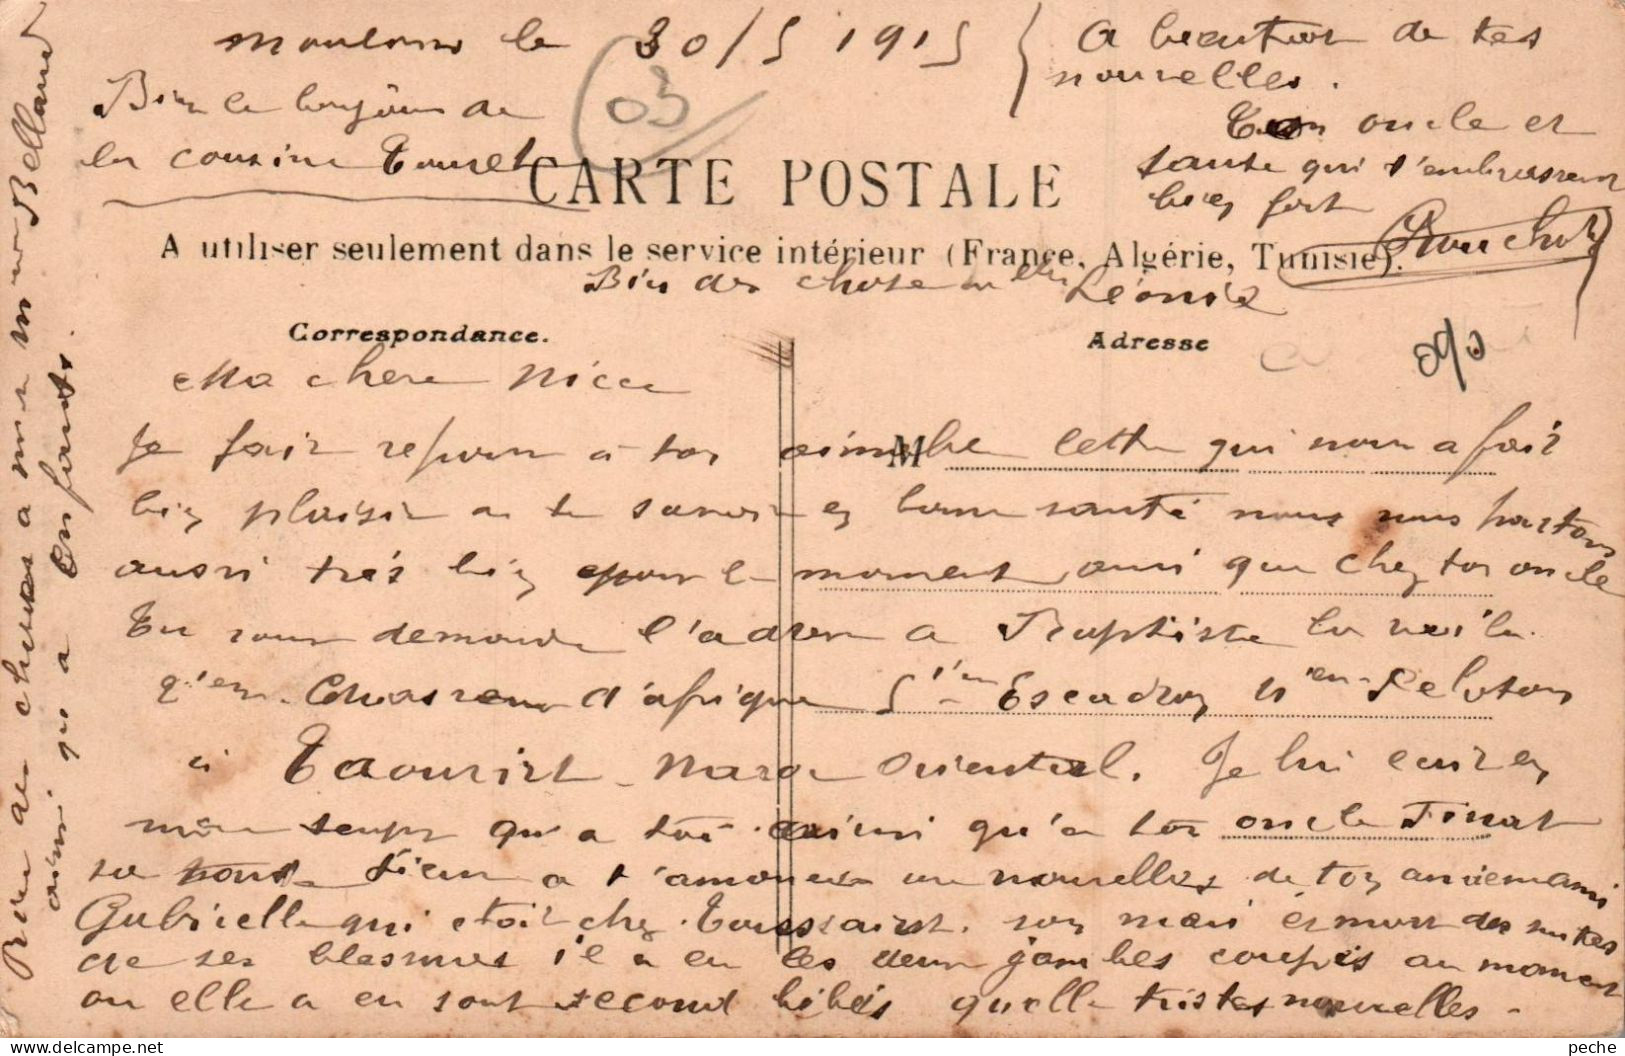 Moulins le 30/5 1915
Bien le bonjour de
la cousine Touret
03
A beention de tes
nouvelles.
Ton oncle et
tante qui t'embrassent
bien fort
Bouchot
CARTE POSTALE
A utiliser seulement dans le service intérieur (France, Algérie, Tunisie).
Bien des chose a elle Léonie
Correspondance.
Adresse
M
Ma chere Niece
Je fair repons a ton aimable lettre qui nous a fait
bien plaisir a te savoir en bonne santé nous nous portons
aussi très bien pour le moment ainsi que chez ton oncle
Tu nous demande l'adresse a Baptiste la voila
Chasseur d'afrique 5ieme Escadron Peloton
a Taourirt Maroc Oriental. Je lui ecrit en
même temps qu'a toi ainsi qu'a ton oncle Finat
a t'anoncer une nouvelles de ton ancienne amie
Gabrielle qui etait chez Toussaint son mari es mort des suites
de ses blessures il a eu les deux jambes coupés au moment
ou elle a eu sont second bébés quelle tristes nouvelles.
Bien des choses a Bellaud
ainsi qu a en fants.
peche